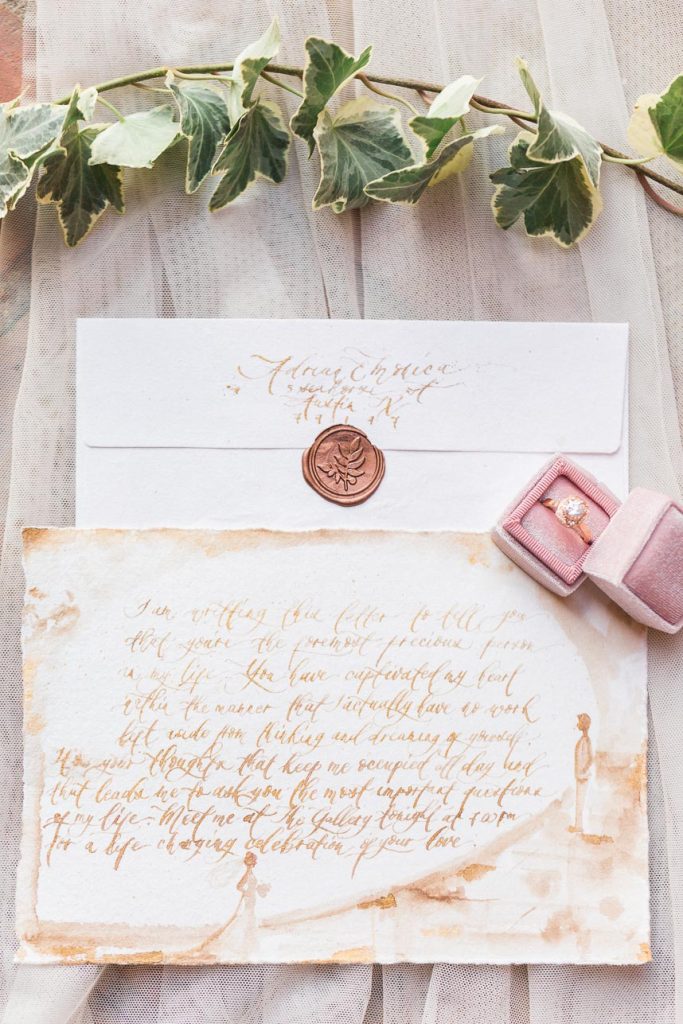 Adrian
Austin
I am writting this letter to tell you
that youre the foremost precious person
in my life. You have captivated my heart
within the manner that I actually have no work
left aside from thinking and dreaming of yourself.
It's your thoughts that keep me occupied all day and
that leads me to ask you the most important questions
of my life. Meet me at the Gallery tonight at
for a life changing celebration of your love.